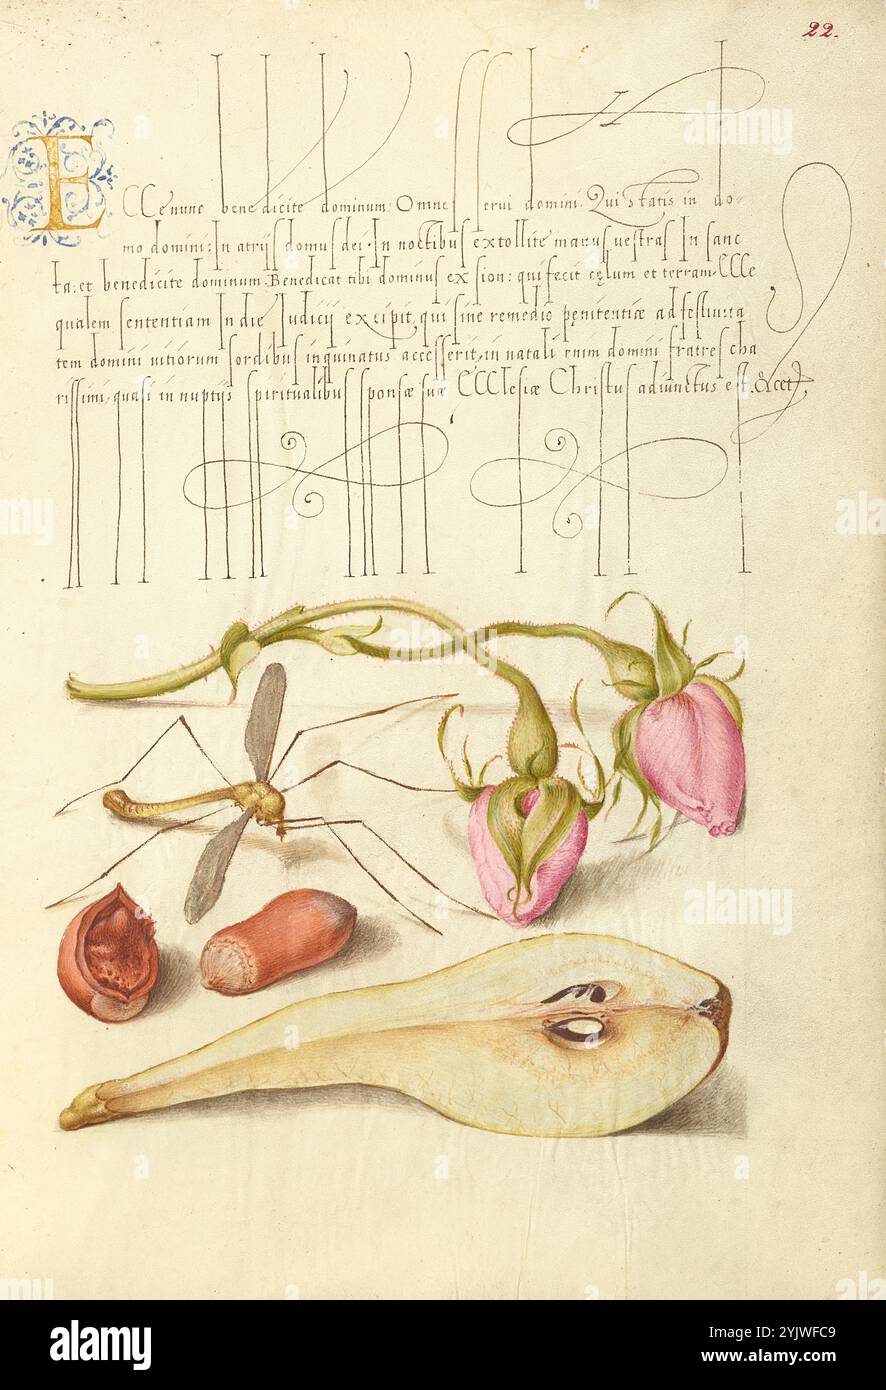 22.
ECCe nunc benedicite dominum: Omnes serui domini: Qui statis in do-
mo domini: In atrijs domus dei. In noctibus extollite manus uestras In sanc
ta: et benedicite dominum. Benedicat tibi dominus ex sion: qui fecit cęlum et terram. CCCe
qualem sententiam In die Iudicij excipit, qui sine remedio pęnitentiæ ad festiuita
tem domini uitiorum sordibus inquinatus accesserit, in natali enim domini fratres cha
rissimi, quasi in nuptijs spiritualibus sponsæ suæ ECCClesiæ Christus adiunctus est. &cet
alamy
Image ID: 2YJWFC9
www.alamy.com